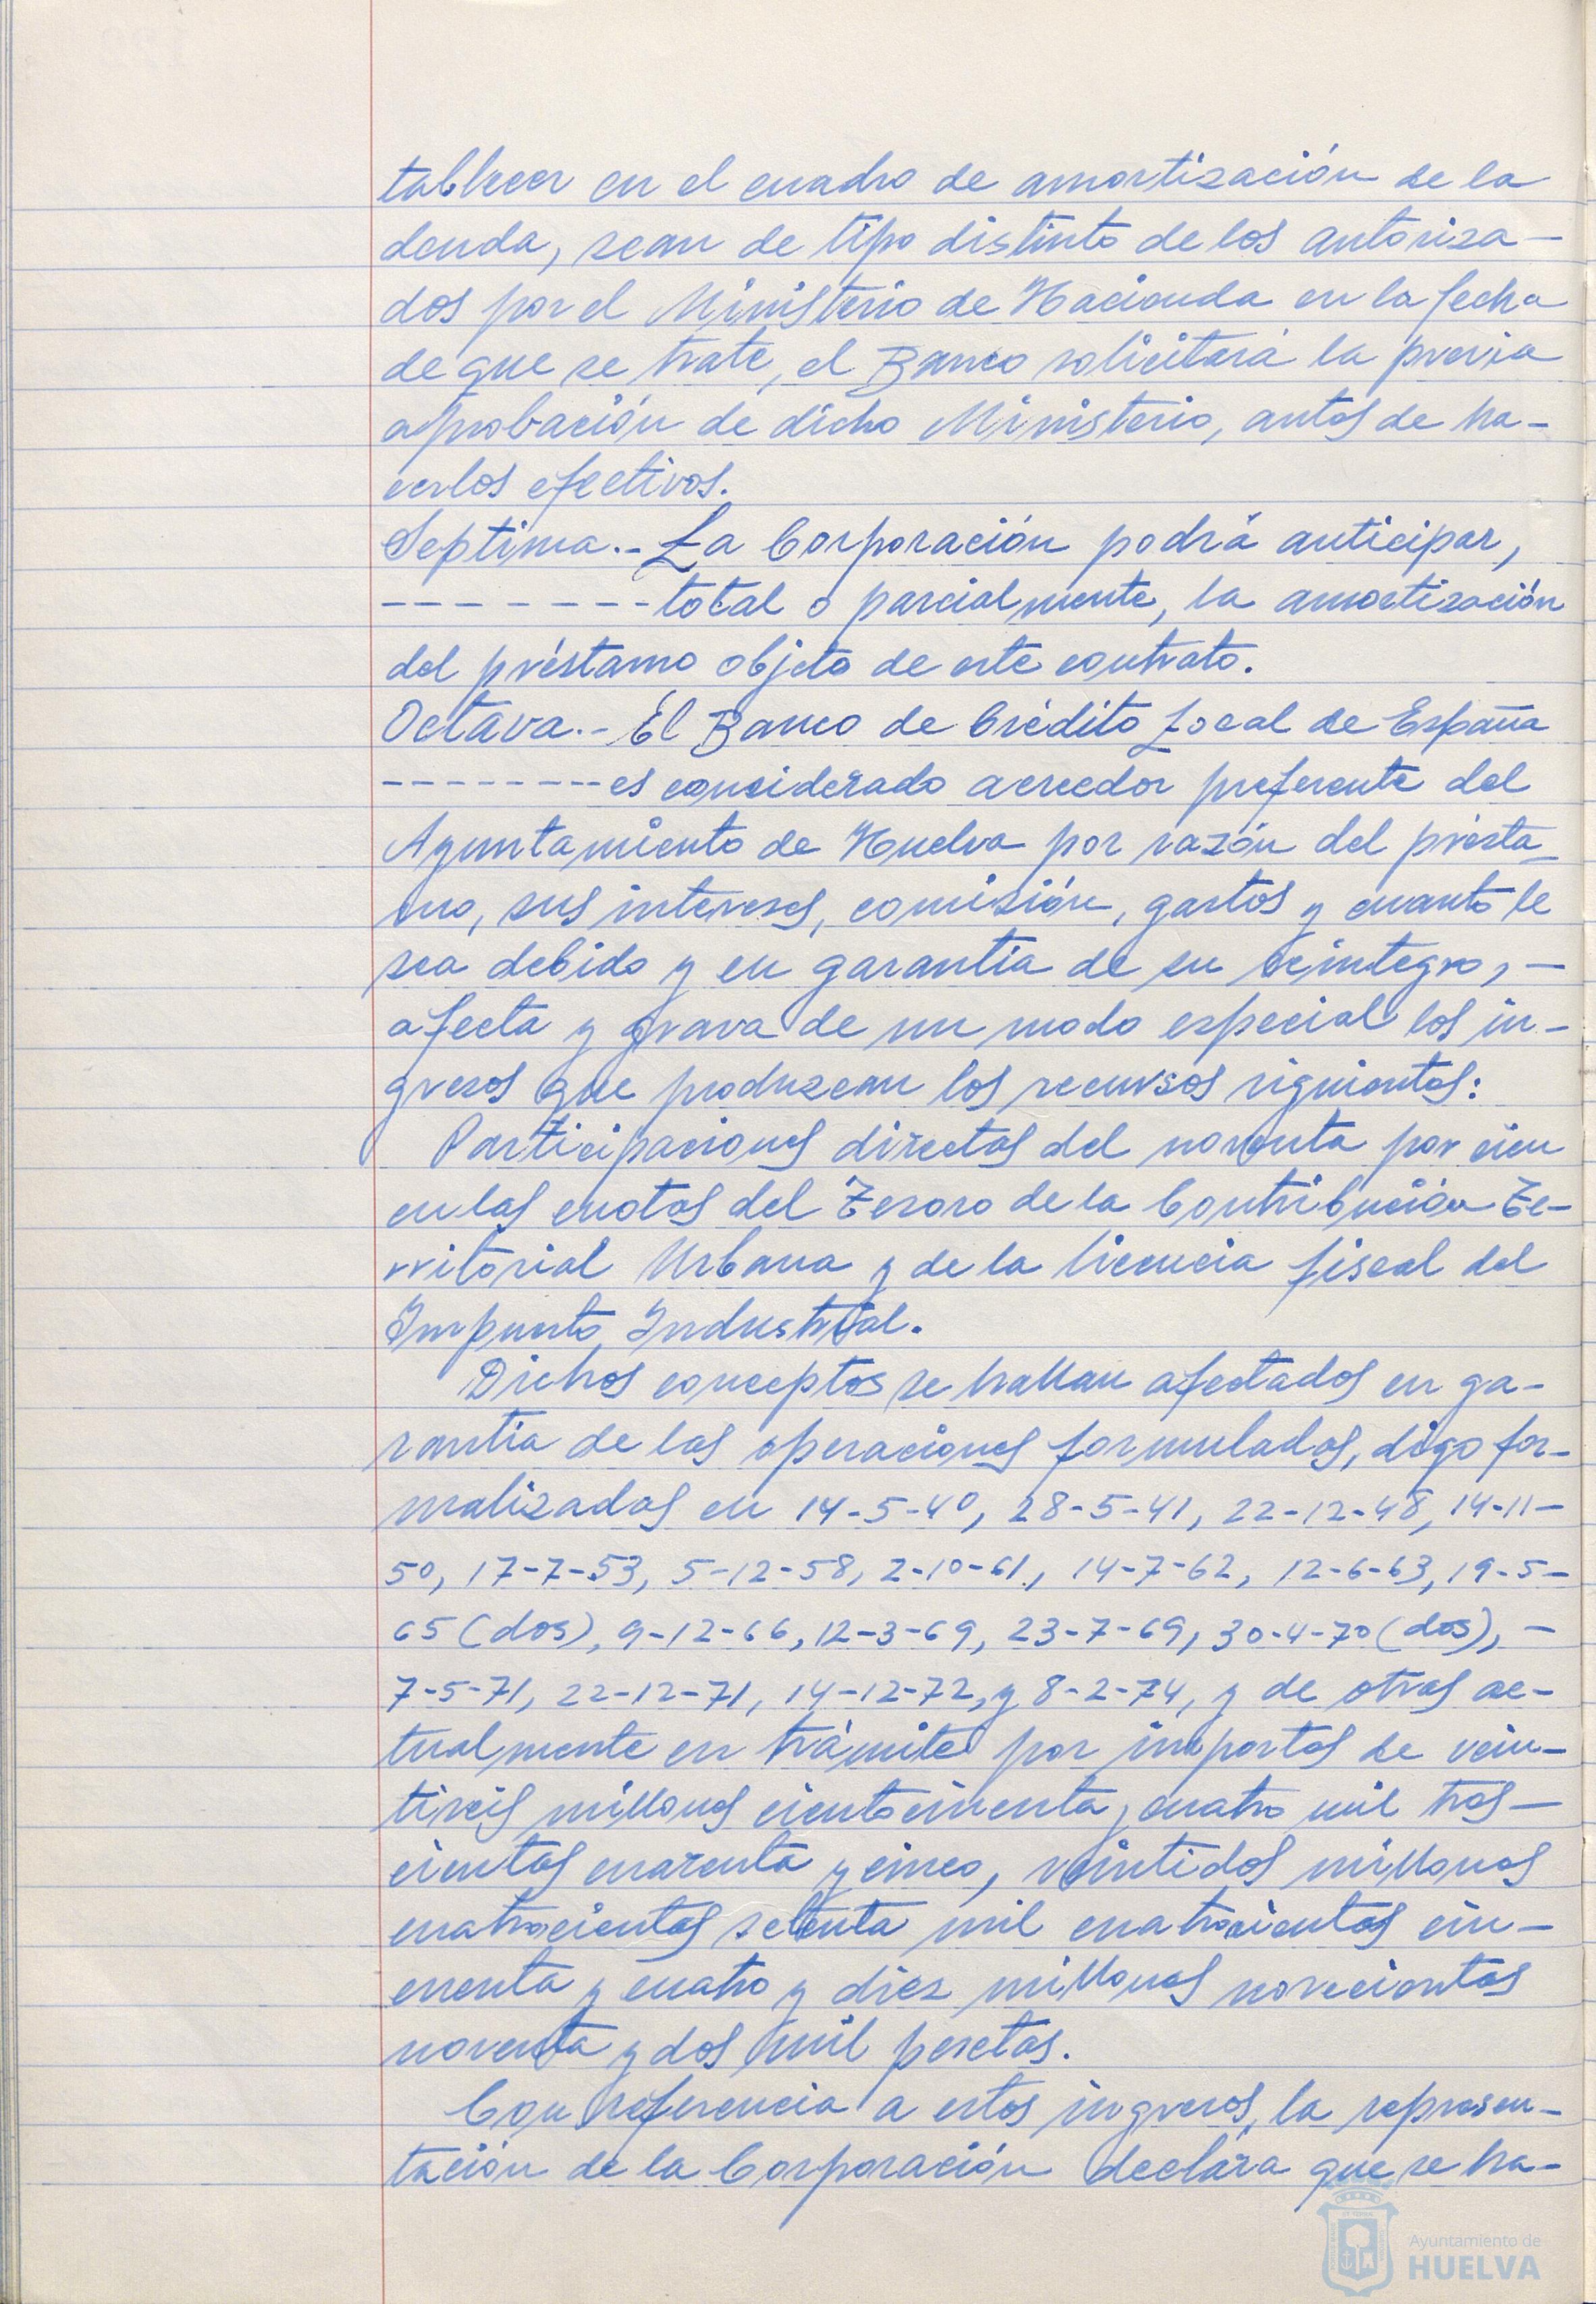 tablecer en el cuadro de amortización de la
deuda, sean de tipo distinto de los autoriza-
dos por el Ministerio de Hacienda en la fecha
de que se trate, el Banco solicitará la previa
aprobación de dicho Ministerio, antes de ha-
cerlos efectivos.
Septima.- La Corporación podrá anticipar,
-------- total o parcialmente, la amortización
del préstamo objeto de este contrato.
Octava.- El Banco de Crédito Local de España
-------- es considerado acreedor preferente del
Ayuntamiento de Huelva por razón del présta-
mo, sus intereses, comisión, gastos y cuanto le
sea debido y en garantia de su reintegro, -
afecta y grava de un modo especial los in-
gresos que produzcan los recursos siguientes:
Participaciones directas del noventa por cien
en las cuotas del Tesoro de la Contribución Te-
rritorial Urbana y de la licencia fiscal del
Impuesto Industrial.
Dichos conceptos se hallan afectados en ga-
rantia de las operaciones formuladas, digo for-
malizadas en 14-5-40, 28-5-41, 22-12-48, 14-11-
50, 17-7-53, 5-12-58, 2-10-61, 14-7-62, 12-6-63, 19-5-
65 (dos), 9-12-66, 12-3-69, 23-7-69, 30-4-70 (dos), -
7-5-71, 22-12-71, 14-12-72, y 8-2-74, y de otras ac-
tualmente en trámite por importes de vein-
tiseis millones cientocincuenta y cuatro mil tres-
cientas cuarenta y cinco, veintidos millones
cuatrocientas setenta mil cuatrocientas cin-
cuenta y cuatro y diez millones novecientas
noventa y dos mil pesetas.
Con referencia a estos ingresos, la represen-
tación de la Corporación declara que se ha-
Ayuntamiento de
HUELVA